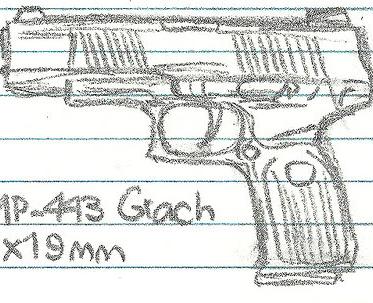 MP-443 Grach
x19mm